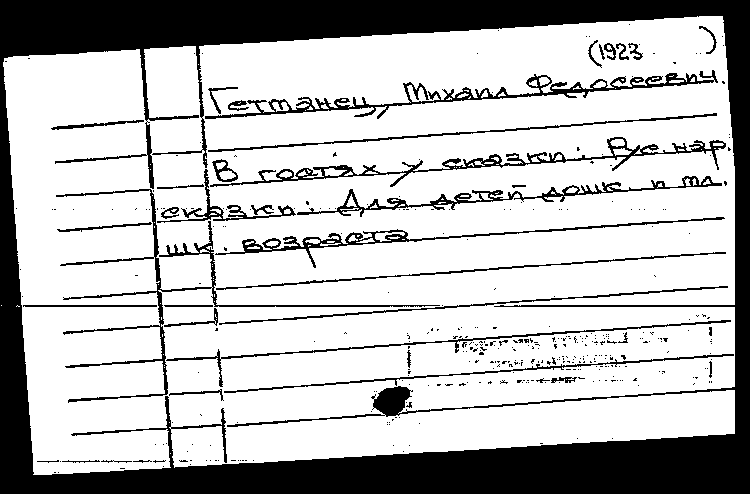 (1923 )
Гетманец, Михаил Федосеевич.
В гостях у сказки: Рус. нар.
сказки: Для детей дошк. и мл.
шк. возраста